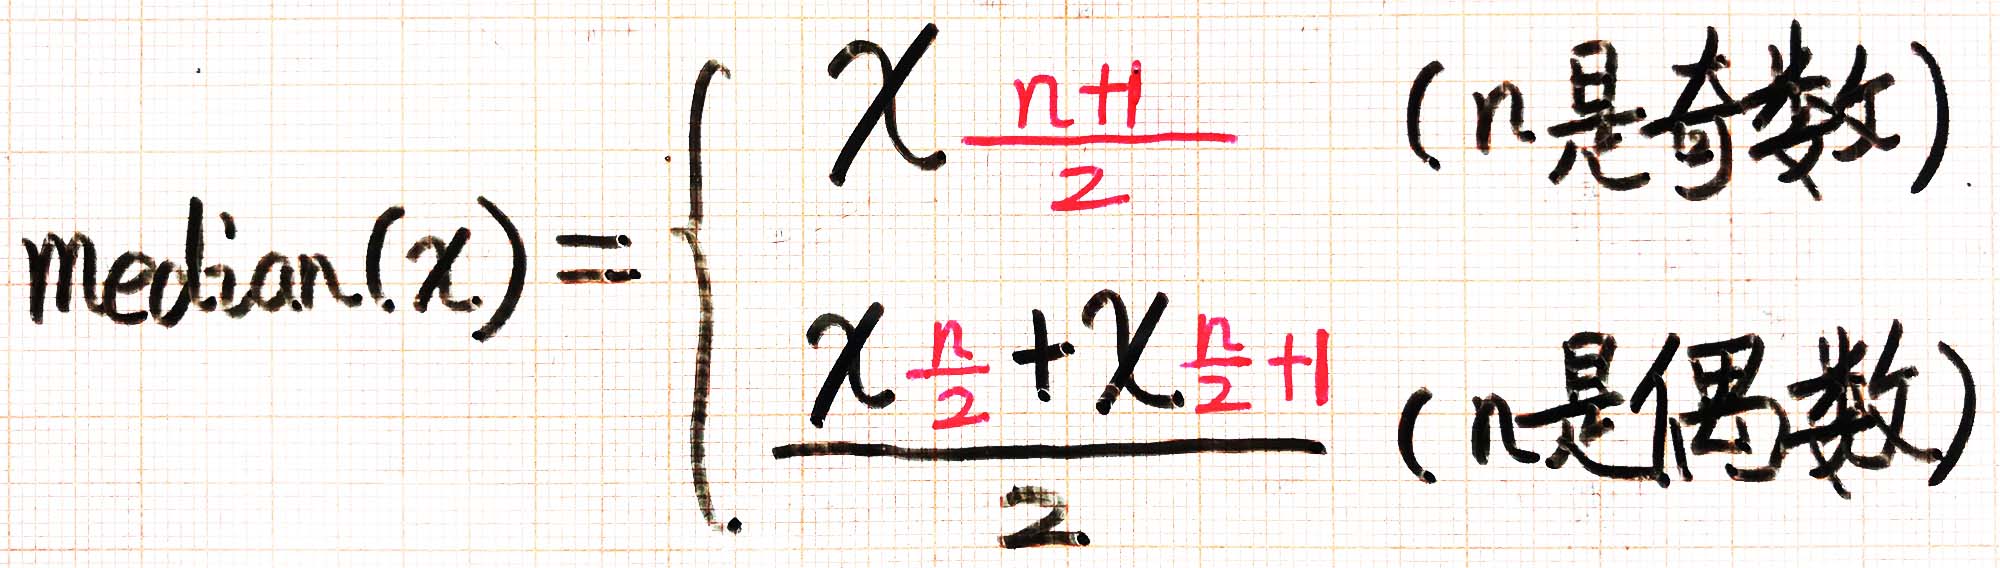 median(x) = { x_{\frac{n+1}{2}} (n是奇数)
\frac{x_{\frac{n}{2}} + x_{\frac{n}{2}+1}}{2} (n是偶数)